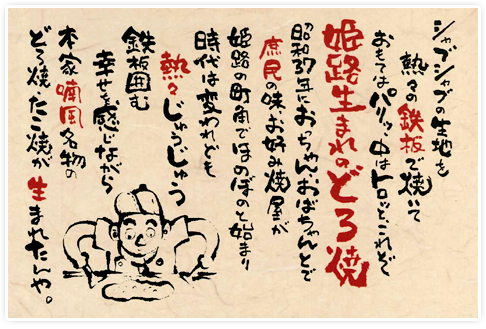 シャブシャブの生地を
熱々の鉄板で焼いて
おもてはパリッ、中はトロッと、これぞ
姫路生まれのどろ焼
昭和37年におっちゃん、おばちゃんとで
庶民の味、お好み焼屋が
姫路の町角でほのぼのと始まり
時代は変われども
熱々じゅうじゅう
鉄板囲む
幸せを感じながら
本家喃風名物の
どろ焼、たこ焼が生まれたんや。